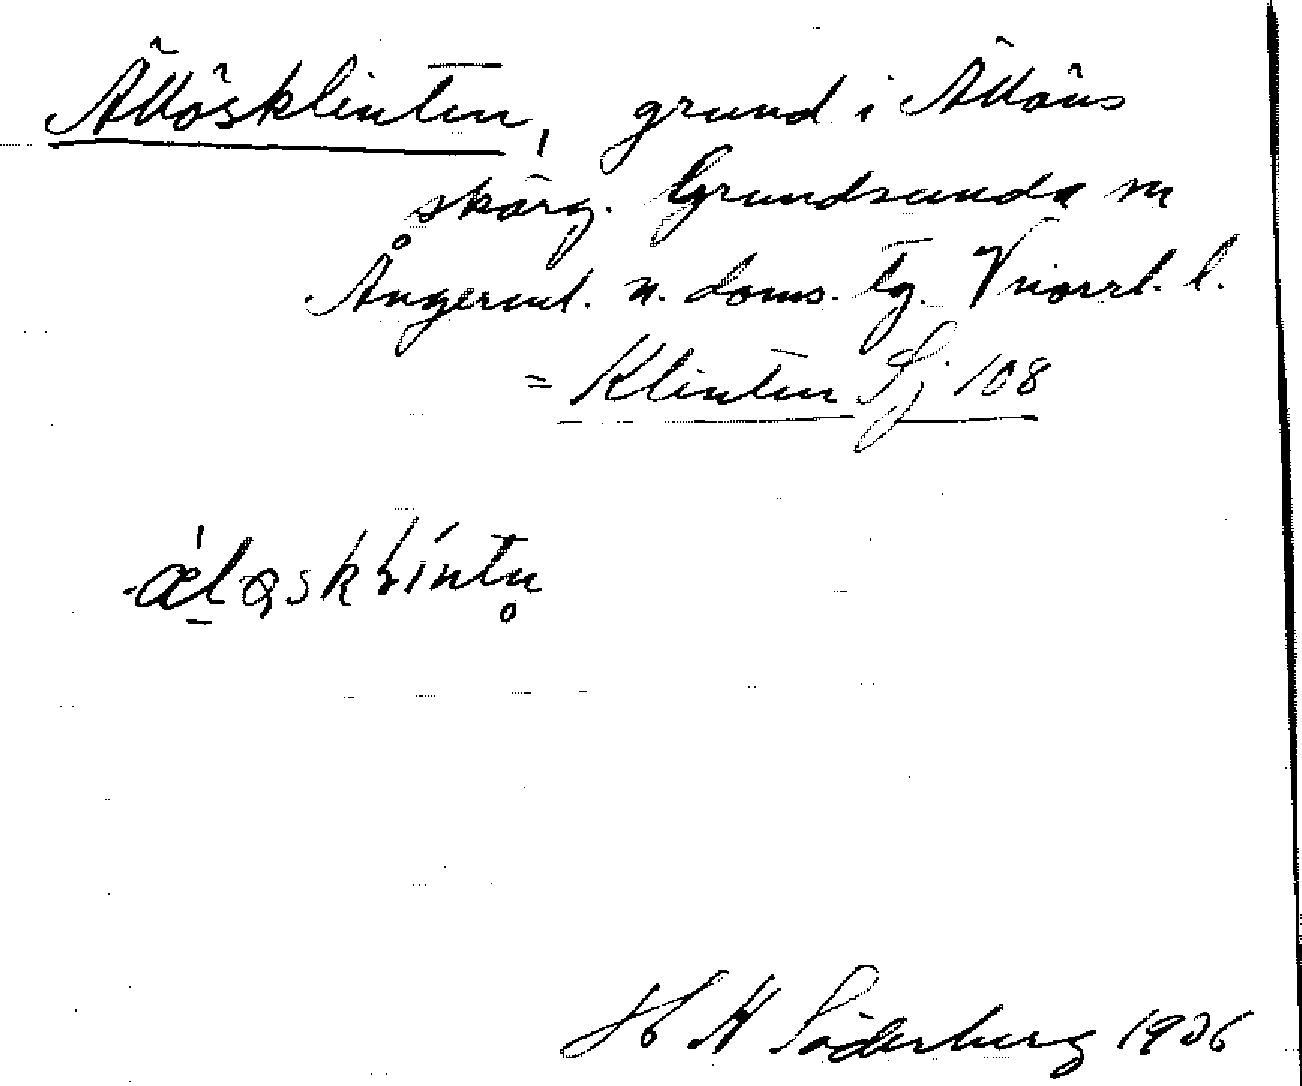 Ällösklinten, grund i Ällöns
skärg. Grundsunda sn
Ångerml. n. doms. tg. Vnorrl. l.
= Klinten Sj 108
H H Söderberg 1926